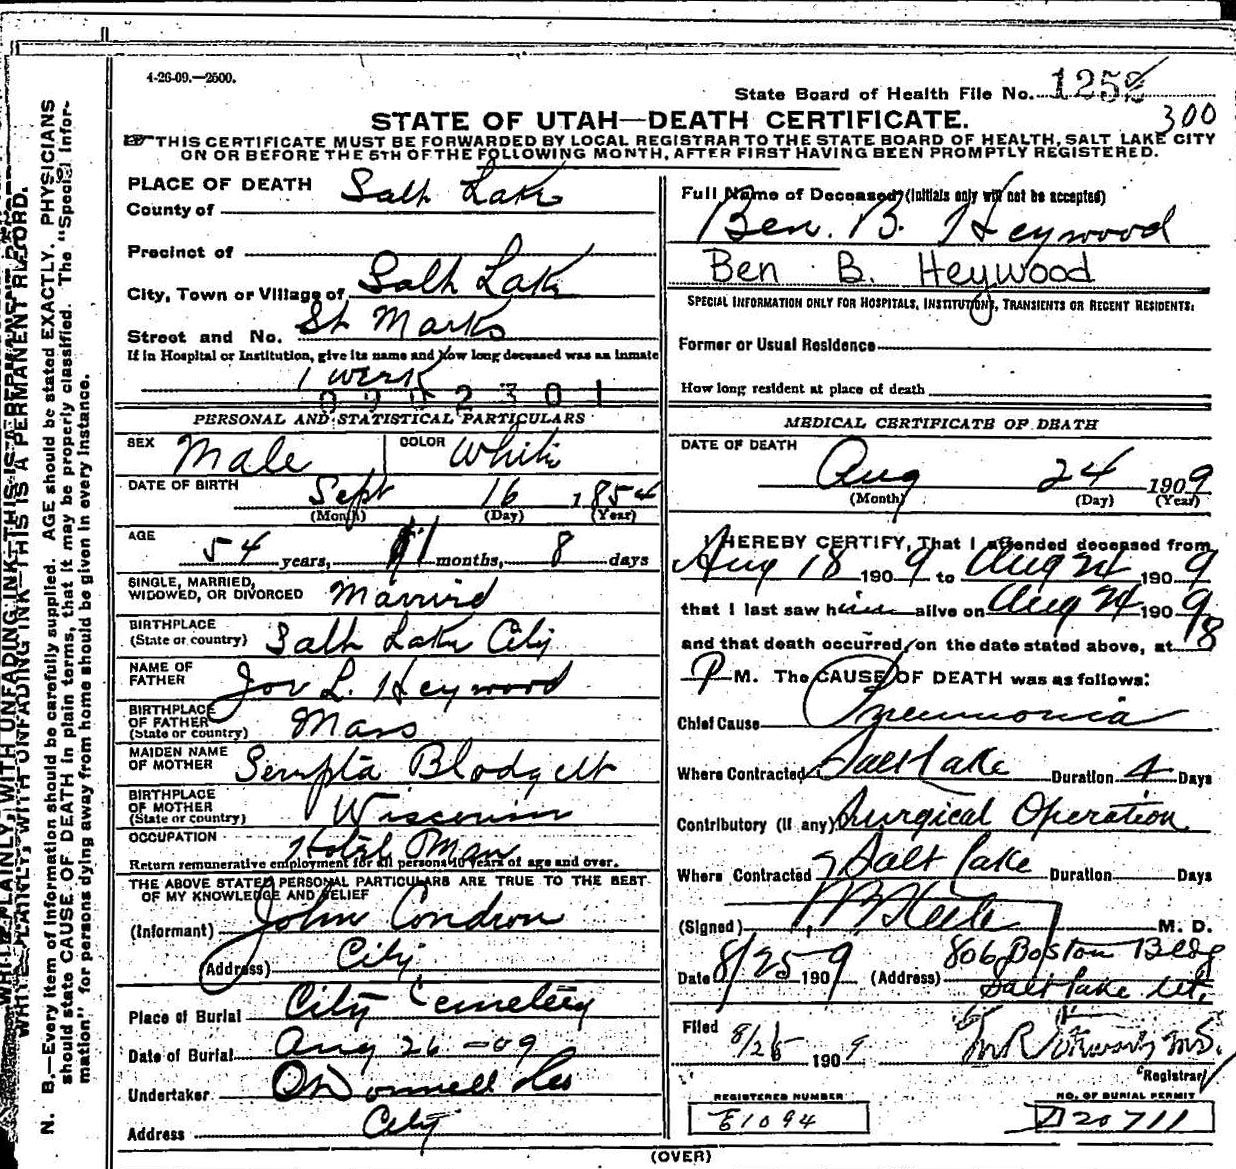 4-26-09.—2500.
State Board of Health File No. 1252
300
STATE OF UTAH—DEATH CERTIFICATE.
THIS CERTIFICATE MUST BE FORWARDED BY LOCAL REGISTRAR TO THE STATE BOARD OF HEALTH, SALT LAKE CITY
ON OR BEFORE THE 5TH OF THE FOLLOWING MONTH, AFTER FIRST HAVING BEEN PROMPTLY REGISTERED.
PLACE OF DEATH
County of Salt Lake
Precinct of
City, Town or Village of Salt Lake
Street and No. St Marks
If in Hospital or Institution, give its name and how long deceased was an inmate
1 week
PERSONAL AND STATISTICAL PARTICULARS
SEX Male COLOR White
DATE OF BIRTH Sept 16 1854
(Month) (Day) (Year)
AGE 54 years, 11 months, 8 days
SINGLE, MARRIED,
WIDOWED, OR DIVORCED Married
BIRTHPLACE
(State or country) Salt Lake City
NAME OF
FATHER Jos L. Heywood
BIRTHPLACE
OF FATHER
(State or country) Mass
MAIDEN NAME
OF MOTHER Blodgett
BIRTHPLACE
OF MOTHER
(State or country) Wisconsin
OCCUPATION Hotel Man
Return remunerative employment for all persons 10 years of age and over.
THE ABOVE STATED PERSONAL PARTICULARS ARE TRUE TO THE BEST
OF MY KNOWLEDGE AND BELIEF
(Informant) John Condron
(Address) City
Place of Burial City Cemetery
Date of Burial Aug 26-09
Undertaker O'Donnell
Address City
Full Name of Deceased (Initials only will not be accepted)
Ben. B. Heywood
Ben B. Heywood
SPECIAL INFORMATION ONLY FOR HOSPITALS, INSTITUTIONS, TRANSIENTS OR RECENT RESIDENTS:
Former or Usual Residence
How long resident at place of death
MEDICAL CERTIFICATE OF DEATH
DATE OF DEATH
Aug 24 1909
(Month) (Day) (Year)
I HEREBY CERTIFY, That I attended deceased from
Aug 18 1909 to Aug 24 1909
that I last saw him alive on Aug 24 1909
and that death occurred, on the date stated above, at 8
P M. The CAUSE OF DEATH was as follows:
Chief Cause Pneumonia
Where Contracted Salt Lake Duration 4 Days
Contributory (if any) Surgical Operation
Where Contracted Salt Lake Duration Days
(Signed) M. D.
Date 8/25 1909 (Address) 806 Boston Bldg
Salt Lake Ut.
Filed 8/26 1909
Registrar
REGISTERED NUMBER
E1094
NO. OF BURIAL PERMIT
D20711
(OVER)
WRITE PLAINLY, WITH UNFADING INK—THIS IS A PERMANENT RECORD.
N. B.—Every item of information should be carefully supplied. AGE should be stated EXACTLY. PHYSICIANS
should state CAUSE OF DEATH in plain terms, that it may be properly classified. The "Special Infor-
mation" for persons dying away from home should be given in every instance.